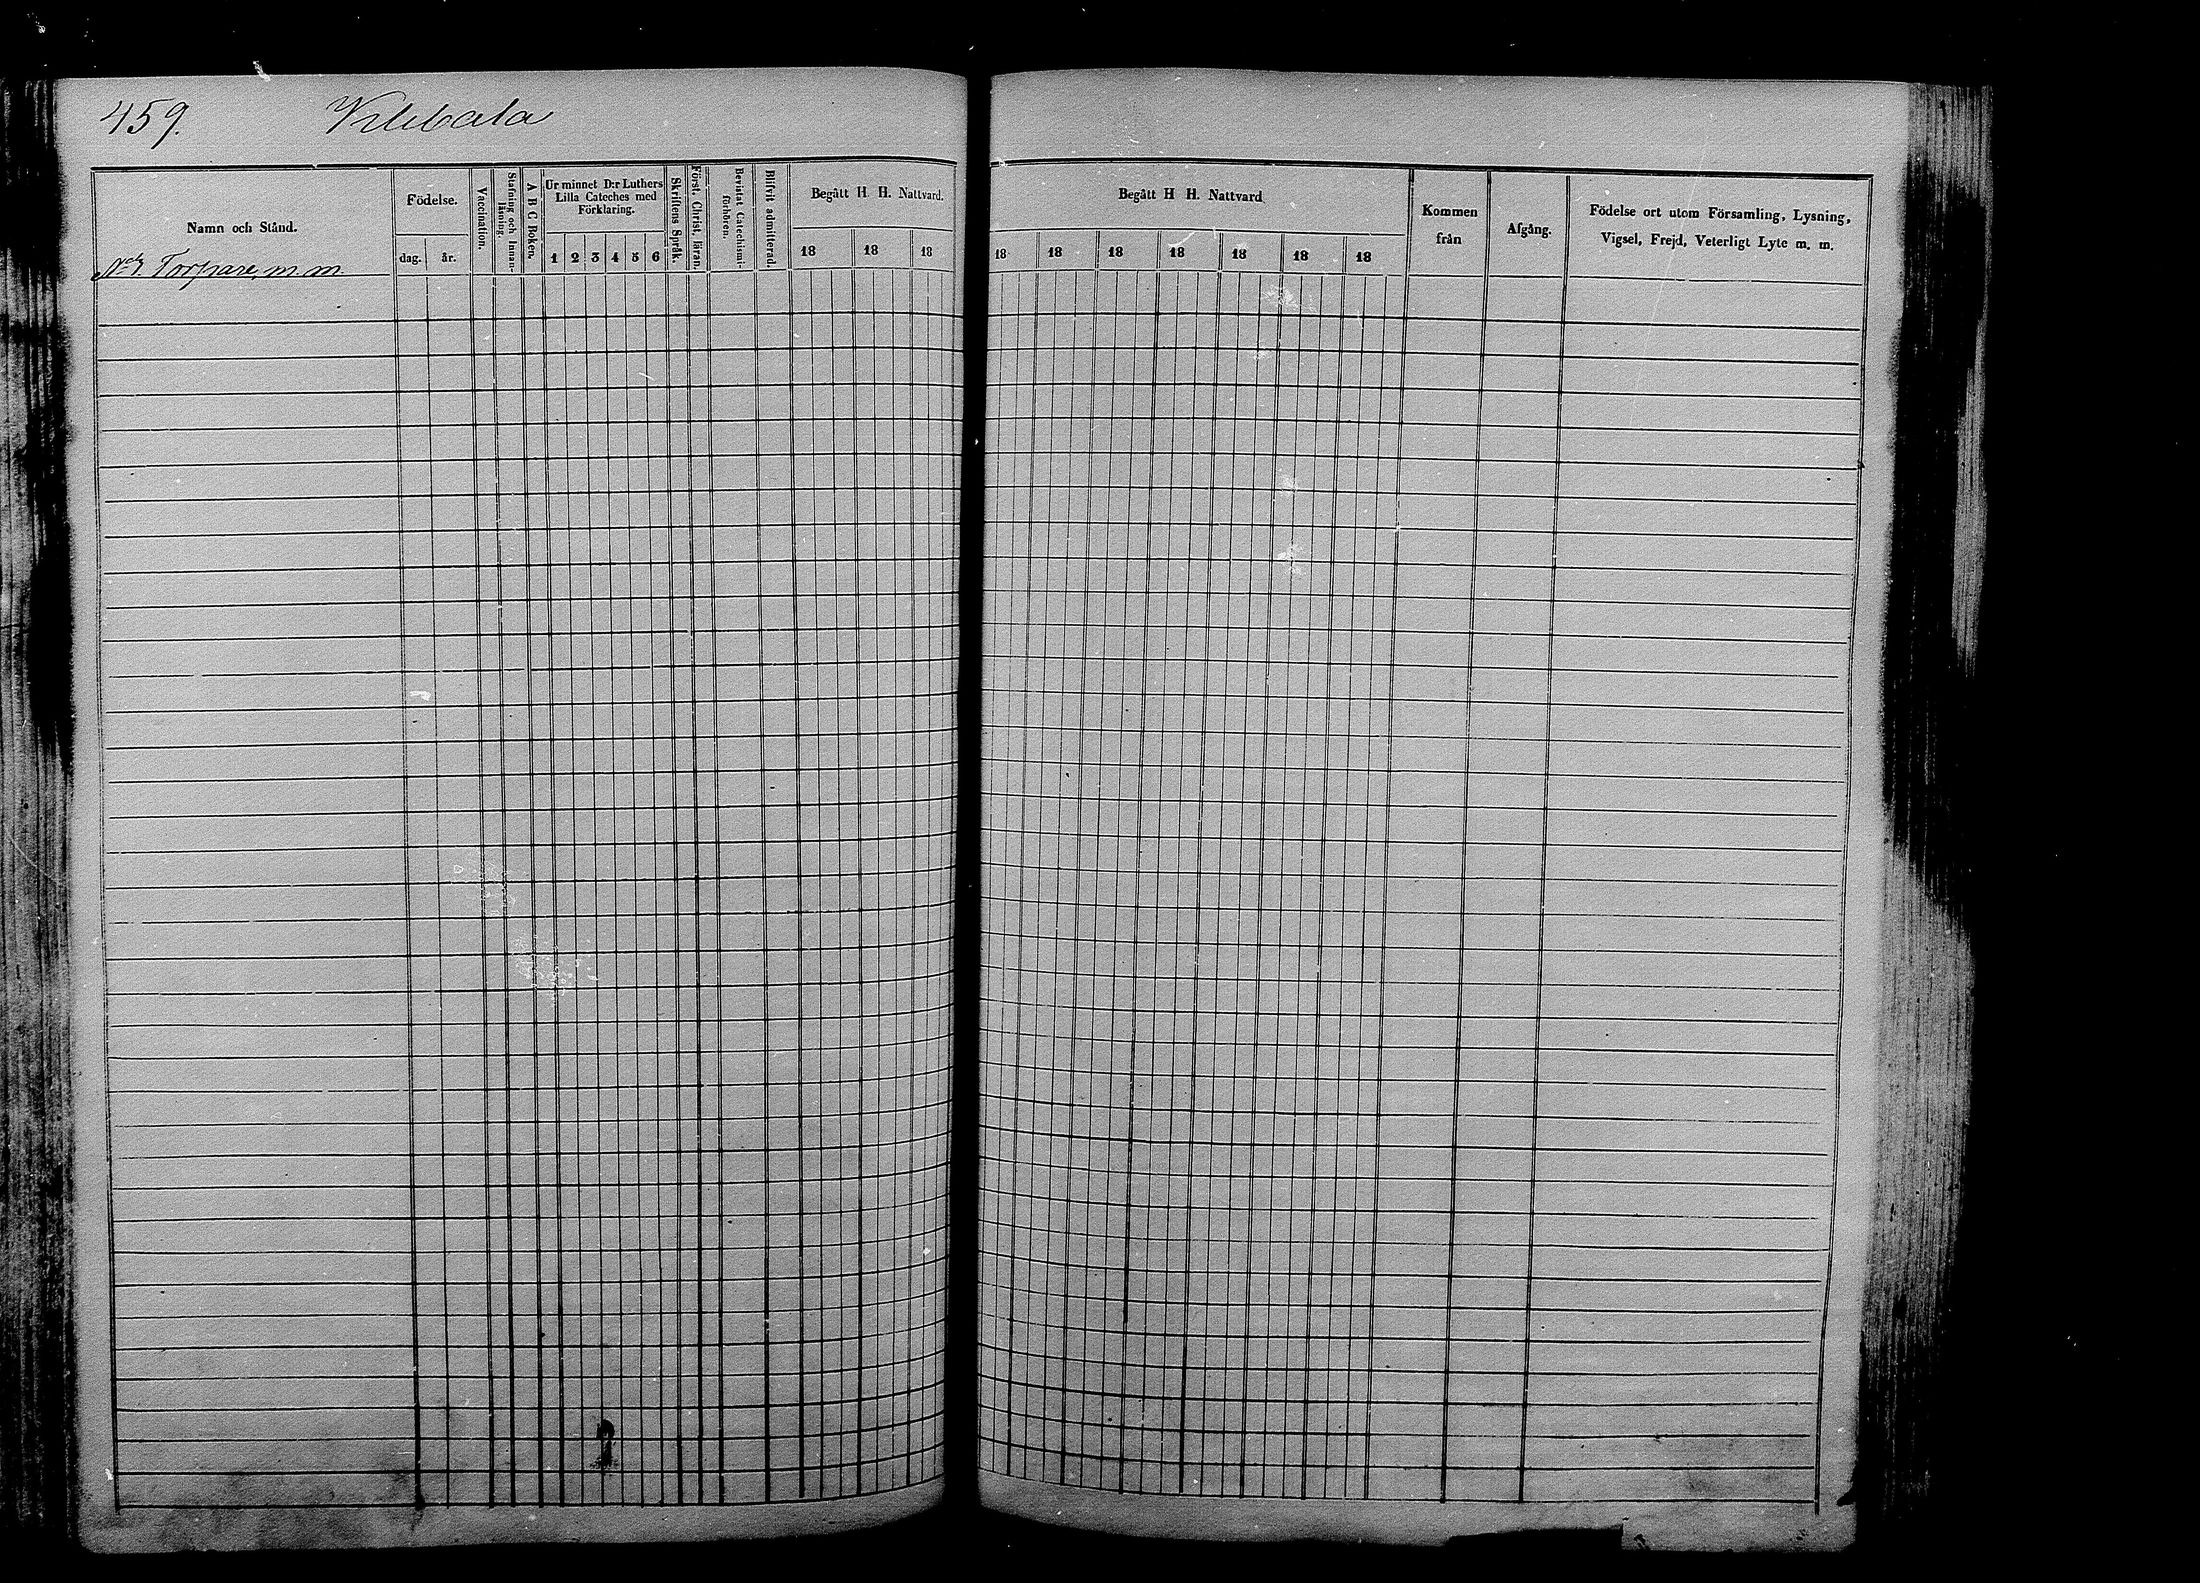 459. Vilebala
Namn och Stånd.
Födelse.
dag. år.
Vaccination.
Stafning och Innan-
läsning.
A B C Boken.
Ur minnet D:r Luthers
Lilla Cateches med
Förklaring.
1 2 3 4 5 6
Skriftens Språk.
Först. Christ. läran.
Bevistat Catechismi-
förhören.
Blifvit admitterad.
Begått H H. Nattvard.
18 18 18
Torpare, m. m.
Begått H H. Nattvard
18 18 18 18 18 18 18
Kommen
från
Afgång.
Födelse ort utom Församling, Lysning,
Vigsel, Frejd, Veterligt Lyte m. m.